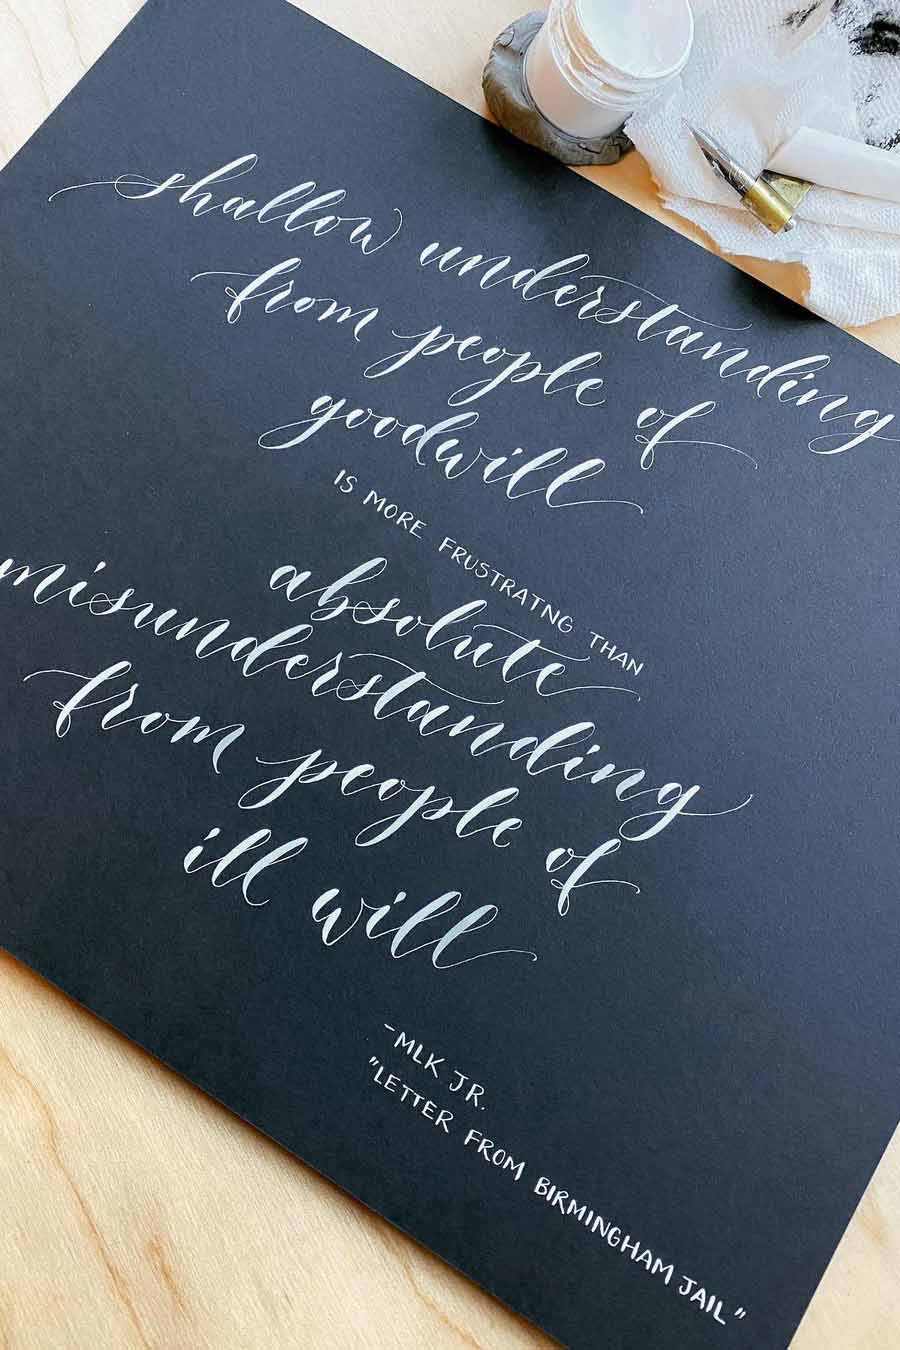 shallow understanding
from people of
goodwill
IS MORE FRUSTRATNG THAN
absolute
misunderstanding
from people of
ill will
-MLK JR.
"LETTER FROM BIRMINGHAM JAIL"